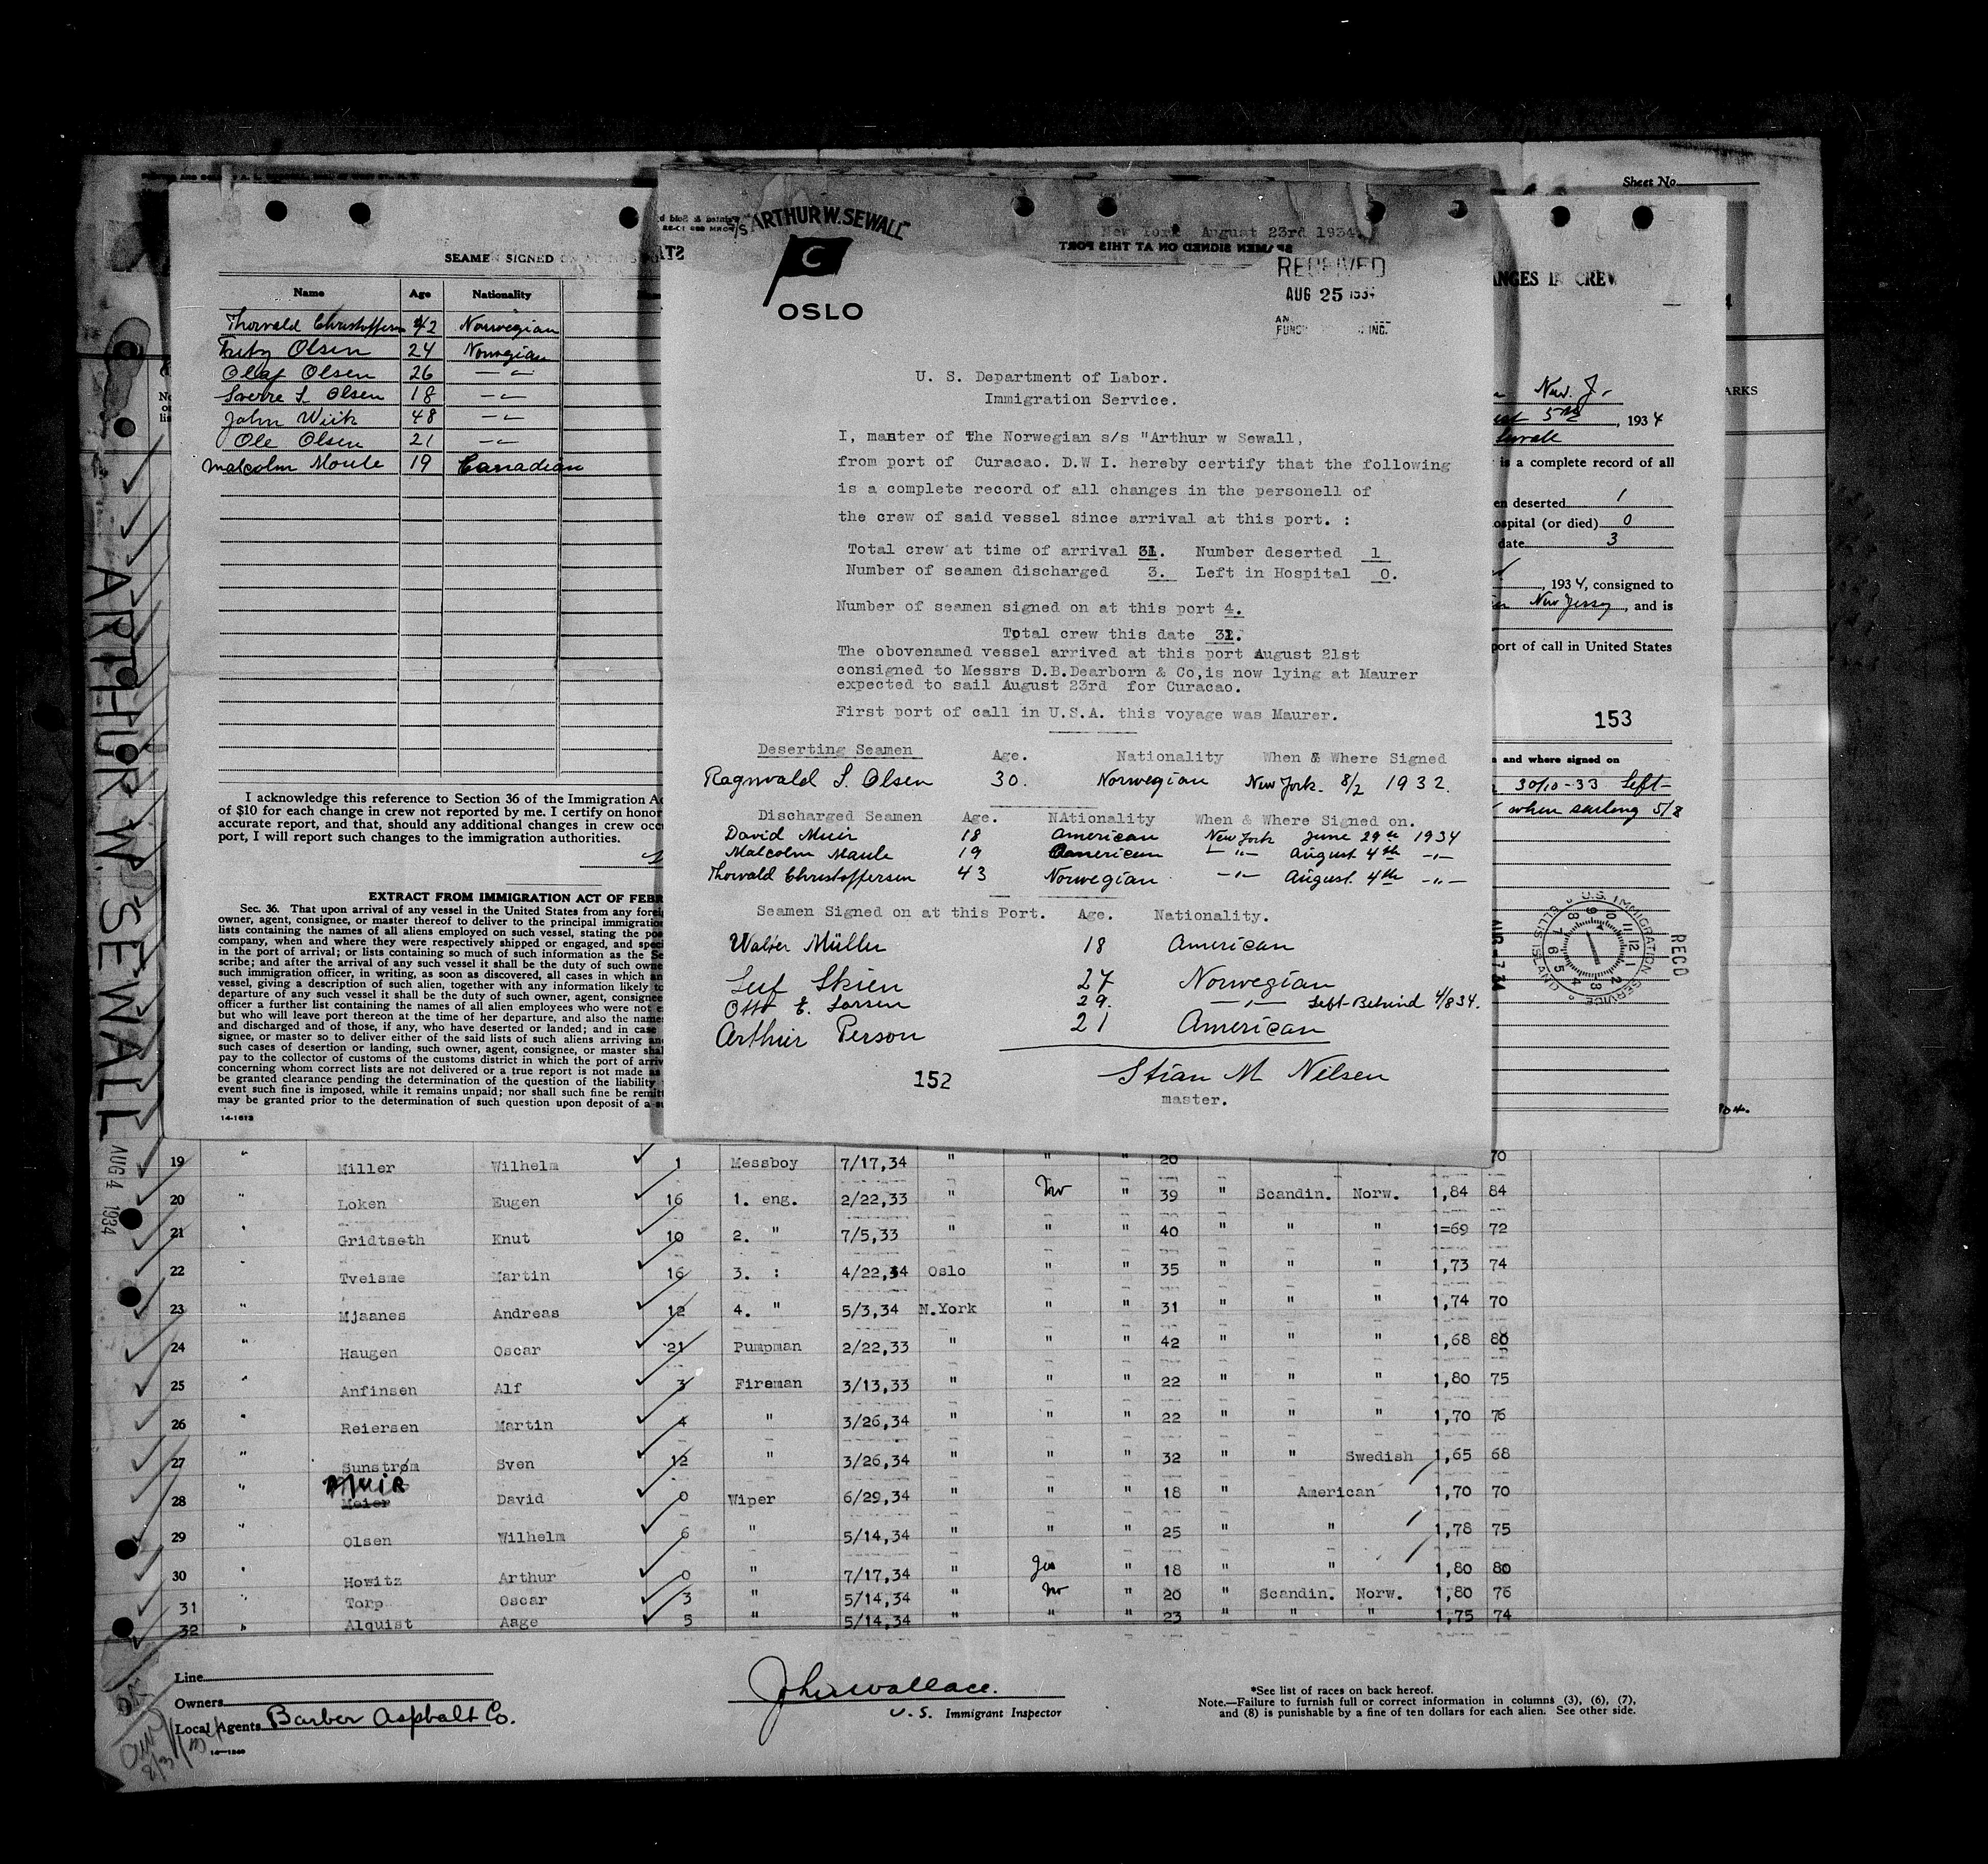 Sheet No.
SEAMEN SIGNED
Name Age Nationality
Thorvald Christoffersen 42 Norwegian
Fritz Olsen 24 Norwegian
Olaf Olsen 26 -"-
Sverre L Olsen 18 -"-
John Wiik 48 -"-
Ole Olsen 21 -"-
Malcolm Moule 19 Canadian
I acknowledge this reference to Section 36 of the Immigration Ac
of $10 for each change in crew not reported by me. I certify on honor
accurate report, and that, should any additional changes in crew occ
port, I will report such changes to the immigration authorities.
EXTRACT FROM IMMIGRATION ACT OF FEBR
Sec. 36. That upon arrival of any vessel in the United States from any forei
owner, agent, consignee, or master thereof to deliver to the principal immigration
lists containing the names of all aliens employed on such vessel, stating the pos
company, when and where they were respectively shipped or engaged, and speci
in the port of arrival; or lists containing so much of such information as the Se
scribe; and after the arrival of any such vessel it shall be the duty of such owne
such immigration officer, in writing, as soon as discovered, all cases in which an
vessel, giving a description of such alien, together with any information likely to
departure of any such vessel it shall be the duty of such owner, agent, consignee
officer a further list containing the names of all alien employees who were not e
but who will leave port thereon at the time of her departure, and also the names
and discharged and of those, if any, who have deserted or landed; and in case
signee, or master so to deliver either of the said lists of such aliens arriving and
such cases of desertion or landing, such owner, agent, consignee, or master shal
pay to the collector of customs of the customs district in which the port of arriv
concerning whom correct lists are not delivered or a true report is not made as
be granted clearance pending the determination of the question of the liability
event such fine is imposed, while it remains unpaid; nor shall such fine be remitt
may be granted prior to the determination of such question upon deposit of a su
14-1673
S/S "ARTHUR W. SEWALL"
C
OSLO
New York August 23rd 1934.
SEAMEN SIGNED ON AT THIS PORT
RECEIVED
AUG 25 1934
U. S. Department of Labor.
Immigration Service.
I, master of The Norwegian s/s "Arthur w Sewall,
from port of Curacao. D.W I. hereby certify that the following
is a complete record of all changes in the personell of
the crew of said vessel since arrival at this port. :
Total crew at time of arrival 31. Number deserted 1
Number of seamen discharged 3. Left in Hospital 0.
Number of seamen signed on at this port 4.
Total crew this date 31.
The obovenamed vessel arrived at this port August 21st
consigned to Messrs D.B.Dearborn & Co,is now lying at Maurer
expected to sail August 23rd for Curacao.
First port of call in U.S.A. this voyage was Maurer.
Deserting Seamen Age. Nationality When & Where Signed
Ragnvald S. Olsen 30. Norwegian New York. 8/2 1932.
Discharged Seamen Age. NAtionality When & Where Signed on.
David Muir 18 American New York June 29th 1934
Malcolm Maule 19 American -"- August 4th -"-
Thorvald Christoffersen 43 Norwegian -"- August 4th -"-
Seamen Signed on at this Port. Age. Nationality.
Walter Müller 18 American
Leif Skien 27 Norwegian
Otto E. Larsen 29. -"- Left Behind 4/8 34.
Arthur Person 21 American
152
Stian M Nilsen
master.
NGES IN CREW
New. J.
5th, 1934
is a complete record of all
en deserted 1
ospital (or died) 0
date 3
, 1934, consigned to
New Jersey, and is
port of call in United States
153
and where signed on
30/10-33 Left-
when sailing 5/8
U.S. IMMIGRATION SERVICE ELLIS ISLAND
REC'D
AUG 7 34
ARKS
ARTHUR W. SEWALL
AUG 4 1934
19 " Miller Wilhelm 1 Messboy 7/17,34 " " " 20 70
20 " Loken Eugen 16 1. eng. 2/22,33 " No " 39 " Scandin. Norw. 1,84 84
21 " Gridtseth Knut 10 2. " 7/5,33 " " " 40 " " " 1=69 72
22 " Tveisme Martin 16 3. : 4/22,34 Oslo " " 35 " " " 1,73 74
23 " Mjaanes Andreas 12 4. " 5/3,34 N.York " " 31 " " " 1,74 70
24 " Haugen Oscar 21 Pumpman 2/22,33 " " " 42 " " " 1,68 80
25 " Anfinsen Alf 3 Fireman 3/13,33 " " " 22 " " " 1,80 75
26 " Reiersen Martin 4 " 3/26,34 " " " 22 " " " 1,70 76
27 " Sunstrøm Sven 12 " 3/26,34 " " " 32 " " Swedish 1,65 68
28 " Muir Meier David 0 Wiper 6/29,34 " " " 18 " American 1,70 70
29 " Olsen Wilhelm 6 " 5/14,34 " " " 25 " " 1,78 75
30 " Howitz Arthur 0 " 7/17,34 " Yes " 18 " " 1,80 80
31 " Torp Oscar 3 " 5/14,34 " No " 20 " Scandin. Norw. 1,80 76
32 " Alquist Aage 5 " 5/14,34 " " " 23 " " " 1,75 74
Line
Owners
Local Agents Barber Asphalt Co.
14-1240
John Wallace.
U. S. Immigrant Inspector
*See list of races on back hereof.
Note.—Failure to furnish full or correct information in columns (3), (6), (7),
and (8) is punishable by a fine of ten dollars for each alien. See other side.